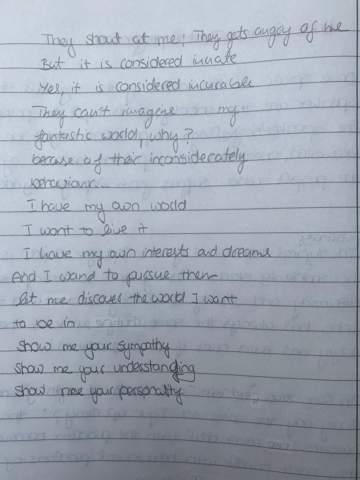 They shout at me! They gets angry of me
But it is considered innate
Yes, it is considered incurable
They can't imagene my
fantastic world, why?
because of their inconsiderately
behaviour.
I have my own world
I want to live it
I have my own interests and dreams
And I wand to pursue them
let me discover the world I want
to be in
Show me your sympathy
Show me your understanding
Show me your personality